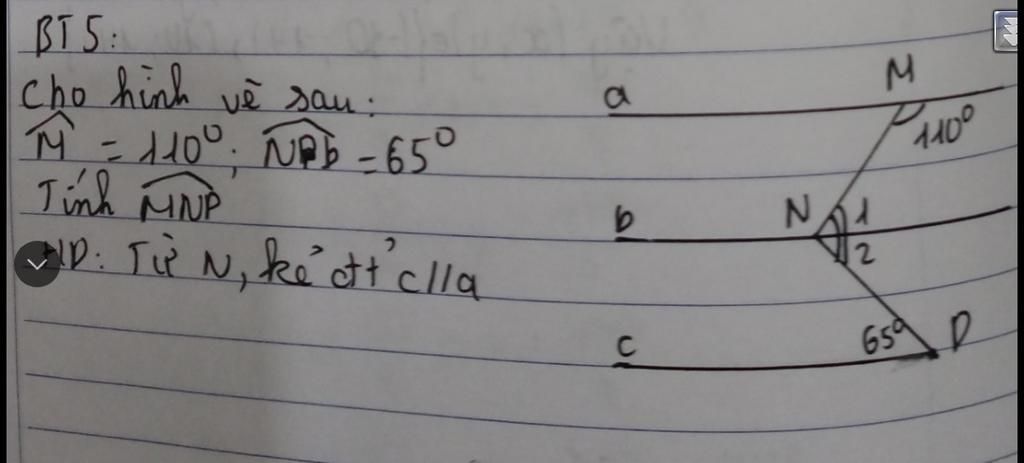 BT5:
Cho hình vẽ sau:
M̂ = 110°; NPb = 65°
Tính MNP
HD: Từ N, kẻ đt' c//a
a
M
110°
b
N
1
2
c
65°
P